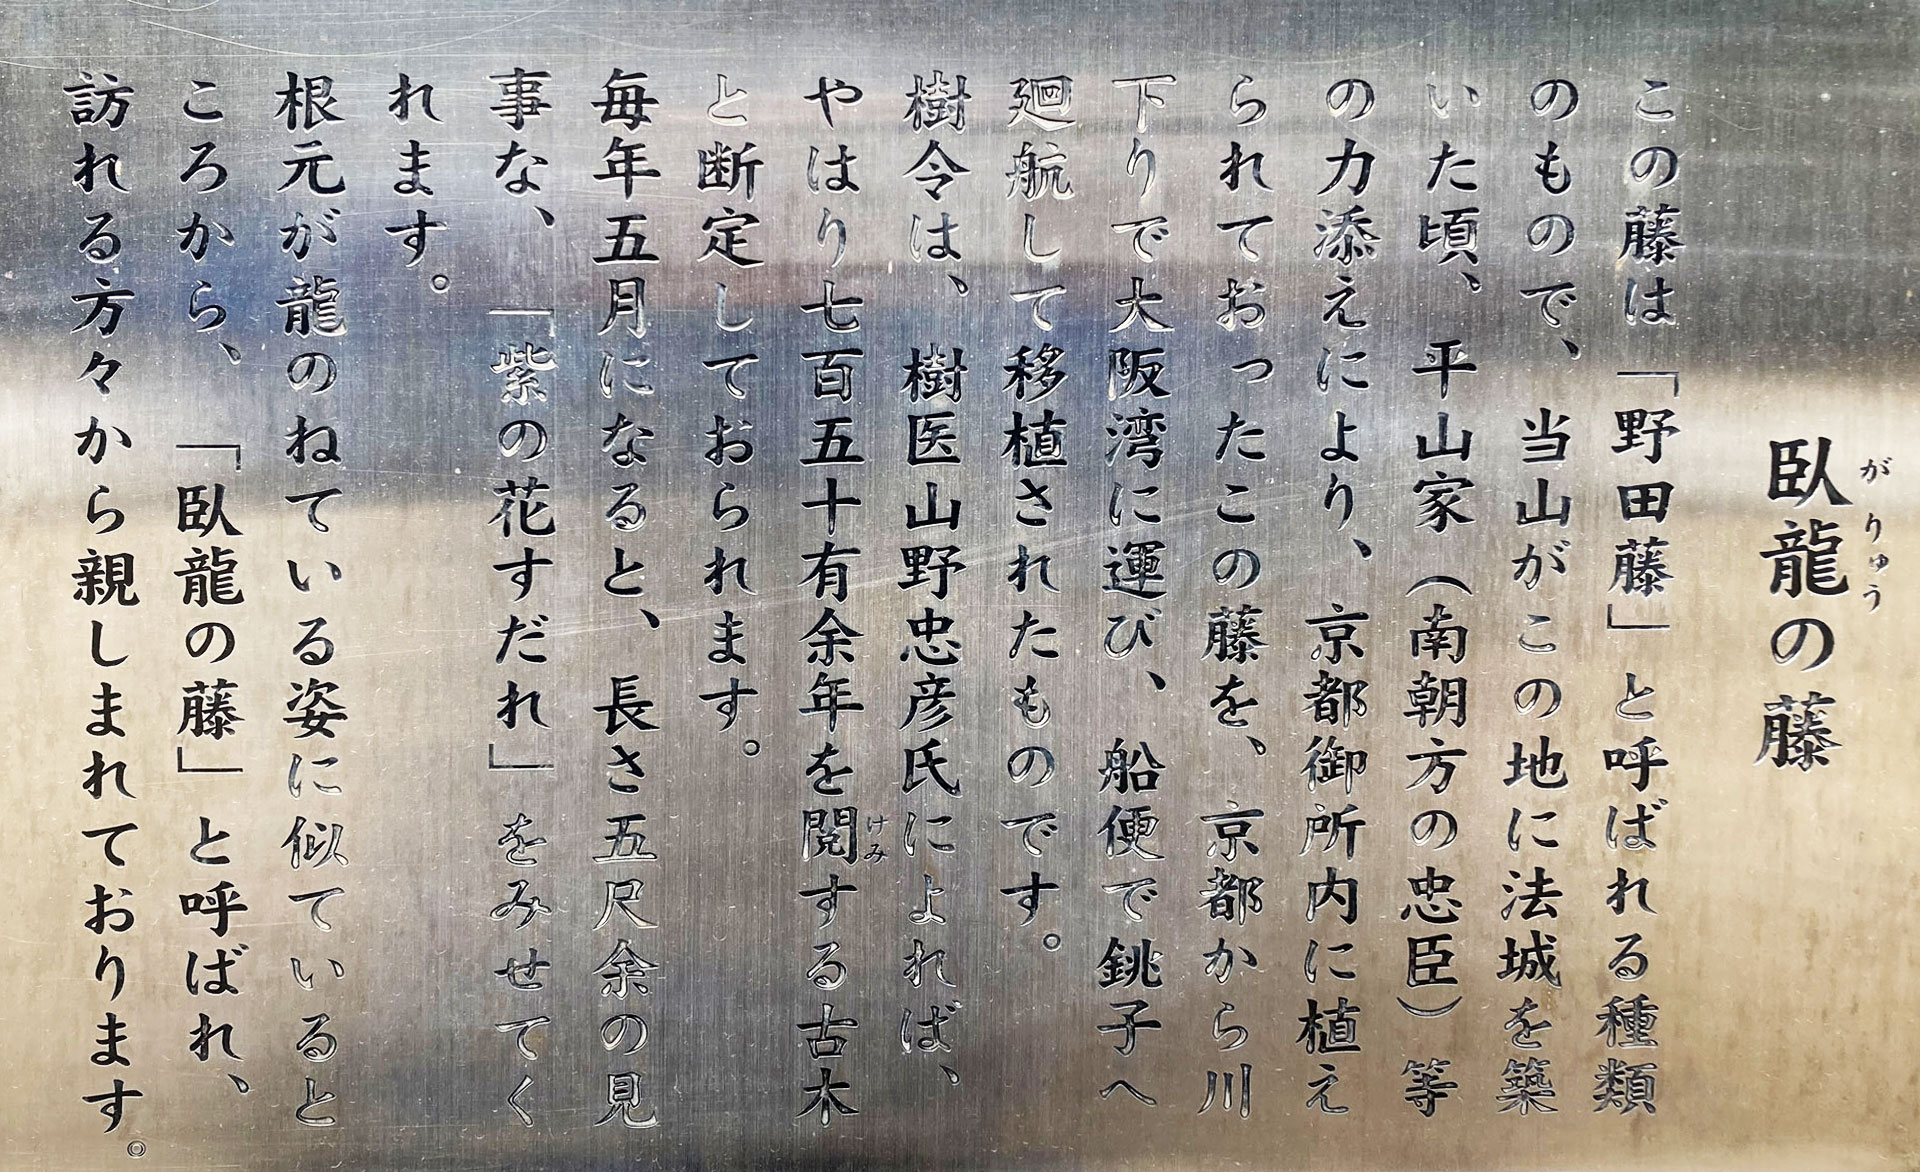 臥龍の藤
がりゅう
この藤は「野田藤」と呼ばれる種類
のもので、当山がこの地に法城を築
いた頃、平山家(南朝方の忠臣)等
の力添えにより、京都御所内に植え
られておったこの藤を、京都から川
下りで大阪湾に運び、船便で銚子へ
廻航して移植されたものです。
樹令は、樹医山野忠彦氏によれば、
やはり七百五十有余年を閲する古木
けみ
と断定しておられます。
毎年五月になると、長さ五尺余の見
事な、「紫の花すだれ」をみせてく
れます。
根元が龍のねている姿に似ていると
ころから、「臥龍の藤」と呼ばれ、
訪れる方々から親しまれております。